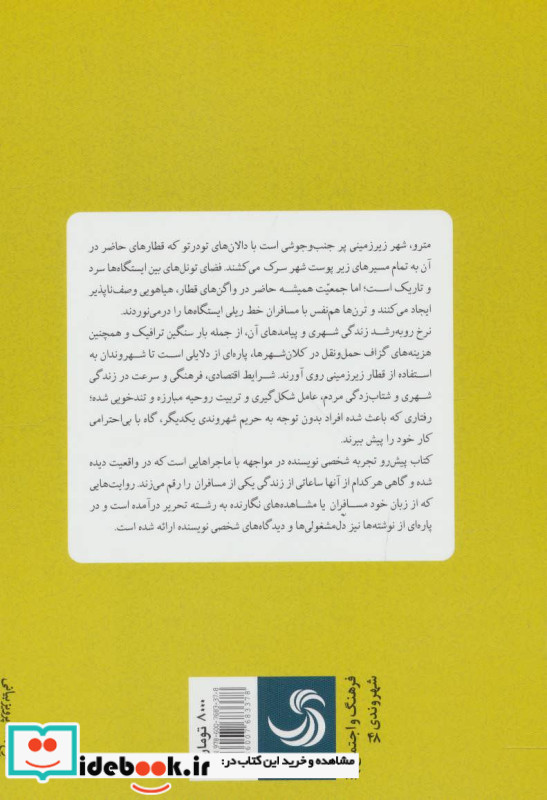 مترو، شهر زیرزمینی پر جنب‌وجوشی است با دالان‌های تودرتو که قطارهای حاضر در
آن به تمام مسیرهای زیر پوست شهر سرک می‌کشند. فضای تونل‌های بین ایستگاه‌ها سرد
و تاریک است؛ اما جمعیّت همیشه حاضر در واگن‌های قطار، هیاهویی وصف‌ناپذیر
ایجاد می‌کنند و ترن‌ها هم‌نفس با مسافران خط ریلی ایستگاه‌ها را درمی‌نوردند.
نرخ روبه‌رشد زندگی شهری و پیامدهای آن، از جمله بار سنگین ترافیک و همچنین
هزینه‌های گزاف حمل‌ونقل در کلان‌شهرها، پاره‌ای از دلایلی است تا شهروندان به
استفاده از قطار زیرزمینی روی آورند. شرایط اقتصادی، فرهنگی و سرعت در زندگی
شهری و شتاب‌زدگی مردم، عامل شکل‌گیری و تربیت روحیه مبارزه و تندخویی شده؛
رفتاری که باعث شده افراد بدون توجه به حریم شهروندی یکدیگر، گاه با بی‌احترامی
کار خود را پیش ببرند.
کتاب پیش‌رو تجربه شخصی نویسنده در مواجهه با ماجراهایی است که در واقعیت دیده
شده و گاهی هر کدام از آنها ساعاتی از زندگی یکی از مسافران را رقم می‌زند. روایت‌هایی
که از زبان خود مسافران یا مشاهده‌های نگارنده به رشته تحریر درآمده است و در
پاره‌ای از نوشته‌ها نیز دل‌مشغولی‌ها و دیدگاه‌های شخصی نویسنده ارائه شده است.
شهروندی
فرهنگ و اجتم
۸۰۰۰ تومان
مشاهده و خرید این کتاب در:
idebook.ir